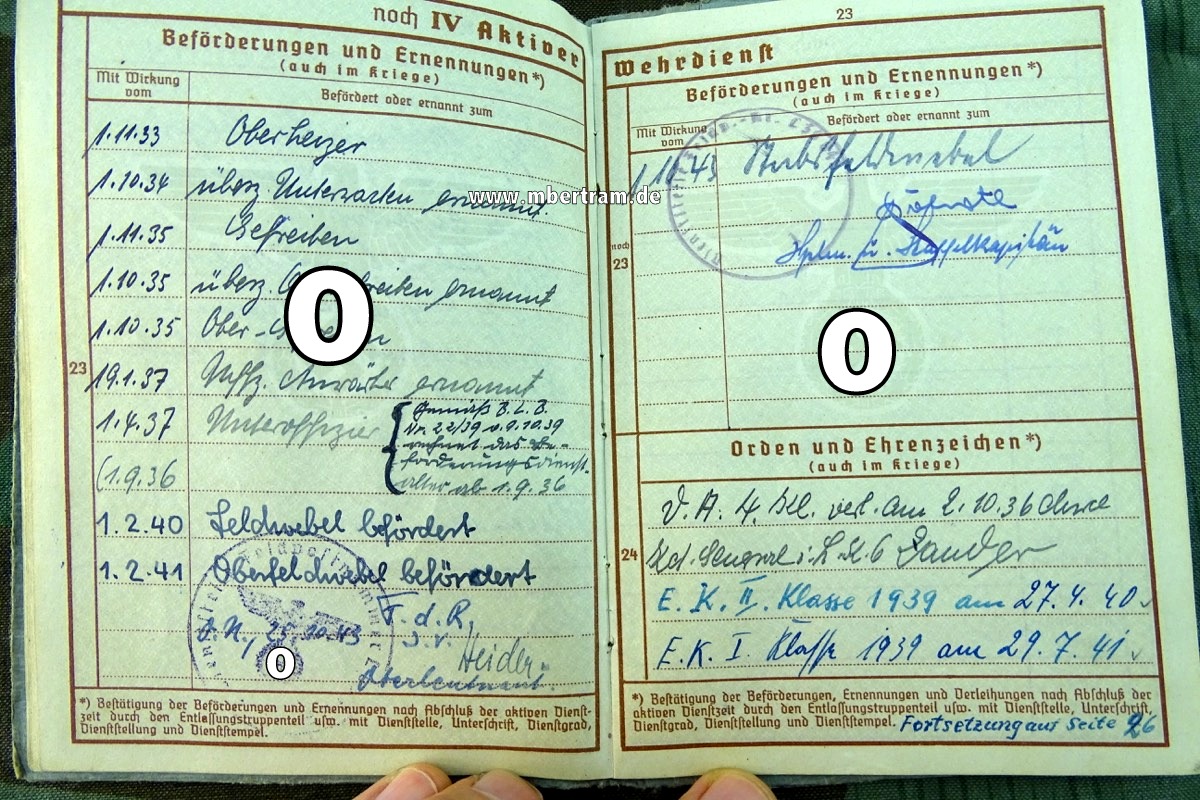 noch IV Aktiver
Beförderungen und Ernennungen*)
(auch im Kriege)
Mit Wirkung vom
Befördert oder ernannt zum
1.11.33 Oberheizer
1.10.34 überz. ernannt.
1.11.35 Gefreiten
1.10.35 überz. ernannt
1.10.35 Ober-
23
19.1.37 Uffz. Anwärter ernannt
1.4.37 Unteroffizier
Gemäß B.L.B.
Nr. 22/39 v. 9.10.39
rechnet das Be-
förderungsdienst-
alter ab 1.9.36
(1.9.36
1.2.40 Feldwebel befördert
1.2.41 Oberfeldwebel befördert
F.d.R.
O.N., 25.10.43
I.V.
Oberleutnant.
*) Bestätigung der Beförderungen und Ernennungen nach Abschluß der aktiven Dienst-
zeit durch den Entlassungstruppenteil usw. mit Dienststelle, Unterschrift, Dienstgrad,
Dienststellung und Dienststempel.
23
Wehrdienst
Beförderungen und Ernennungen*)
(auch im Kriege)
Mit Wirkung vom
Befördert oder ernannt zum
Stabsfeldwebel
www.mbertram.de
noch
23
Hptm. u. Staffelkapitän
0
0
0
Orden und Ehrenzeichen*)
(auch im Kriege)
D.A. 4. Kl. verl. am 2.10.36 durch
24
E.K. II. Klasse 1939 am 27.4.40
E.K. I. Klasse 1939 am 29.7.41
*) Bestätigung der Beförderungen, Ernennungen und Verleihungen nach Abschluß der
aktiven Dienstzeit durch den Entlassungstruppenteil usw. mit Dienststelle, Unterschrift,
Dienstgrad, Dienststellung und Dienststempel.
Fortsetzung auf Seite 26